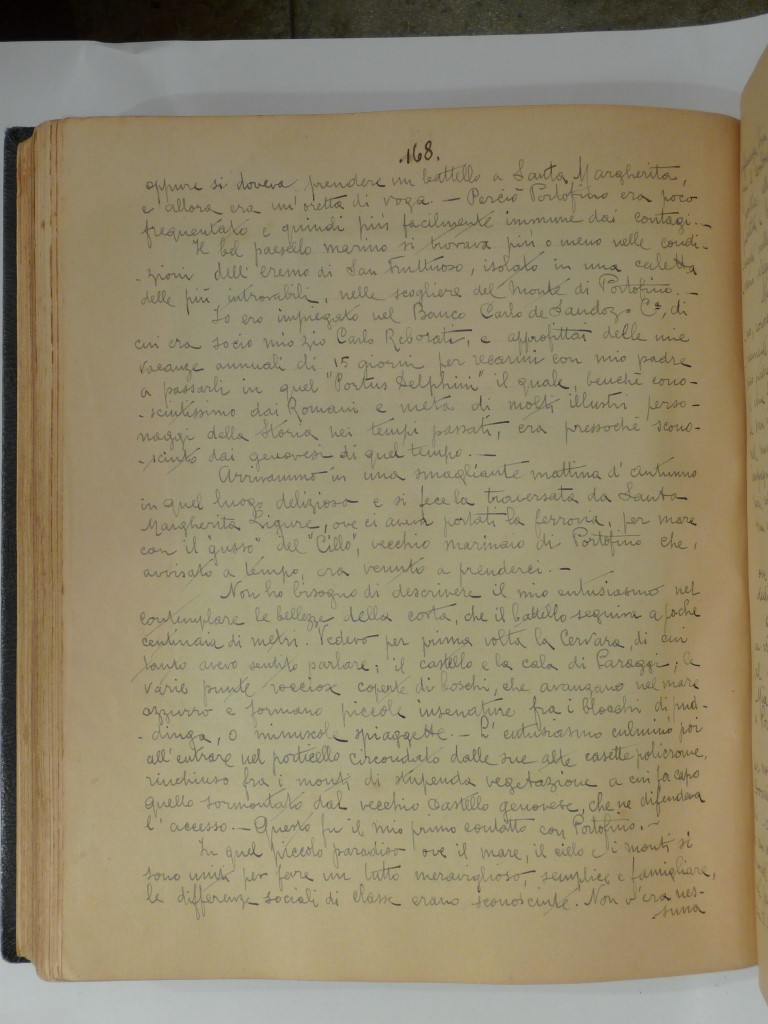 168.
oppure si doveva prendere un battello a Santa Margherita,
e allora era un'oretta di voga. — Perciò Portofino era poco
frequentato e quindi più facilmente immune dai contagi. —
Il bel paesello marino si trovava più o meno nelle condi-
-zioni dell'eremo di San Fruttuoso, isolato in una caletta
delle più introvabili, nelle scogliere del Monte di Portofino. —
Io ero impiegato nel Banco Carlo de Sandoz & Cª, di
cui era socio mio zio Carlo Reborati, e approfittai delle mie
vacanze annuali di 15 giorni per recarmi con mio padre
a passarli in quel "Portus Delphini" il quale, benché cono-
-sciutissimo dai Romani e meta di molti illustri perso-
naggi della Storia nei tempi passati, era pressoché scono-
-sciuto dai genovesi di quel tempo. —
Arrivammo in una smagliante mattina d'autunno
in quel luogo delizioso e si fece la traversata da Santa
Margherita Ligure, ove ci aveva portati la ferrovia, per mare
con il "gusso" del "Cillo", vecchio marinaio di Portofino che,
avvisato a tempo, era venuto a prenderci. —
Non ho bisogno di descrivere il mio entusiasmo nel
contemplare le bellezze della costa, che il battello seguiva a poche
centinaia di metri. Vedevo per prima volta la Cervara, di cui
tanto avevo sentito parlare; il castello e la cala di Paraggi, le
varie punte rocciose coperte di boschi, che avanzano nel mare
azzurro e formano piccole insenature fra i blocchi di pud-
-dinga, o minuscole spiaggette. — L'entusiasmo culminò poi
all'entrare nel porticello circondato dalle sue alte casette policrome,
rinchiuso fra i monti di stupenda vegetazione a cui fa capo
quello sormontato dal vecchio Castello genovese, che ne difendeva
l'accesso. — Questo fu il mio primo contatto con Portofino. —
In quel piccolo paradiso ove il mare, il cielo e i monti si
sono uniti per fare un tutto meraviglioso, semplice e famigliare,
le differenze sociali di classe erano sconosciute. Non v'era nes-
-suna